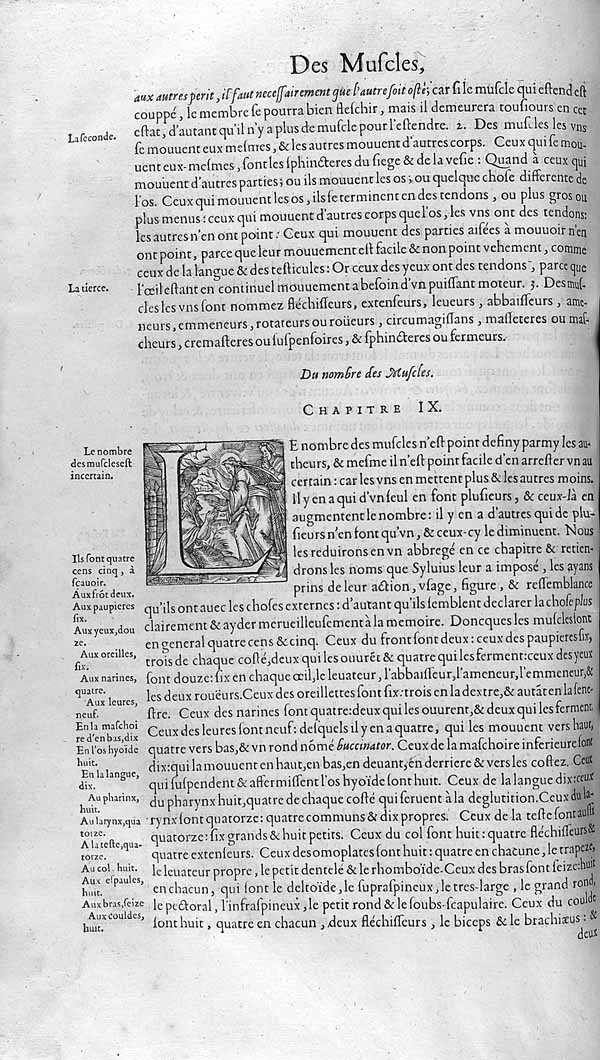 Des Muſcles,
aux autres perit, il faut neceſſairement que l'autre ſoit oſté; car ſi le muſcle qui eſtend eſt
couppé, le membre ſe pourra bien fleſchir, mais il demeurera touſiours en cet
eſtat, d'autant qu'il n'y a plus de muſcle pour l'eſtendre. 2. Des muſcles les vns
ſe mouuent eux meſmes, & les autres mouuent d'autres corps. Ceux qui ſe mou-
uent eux-meſmes, ſont les ſphincteres du ſiege & de la veſie: Quand à ceux qui
mouuent d'autres parties; ou ils mouuent les os, ou quelque choſe differente de
l'os. Ceux qui mouuent les os, ils ſe terminent en des tendons, ou plus gros ou
plus menus: ceux qui mouuent d'autres corps que l'os, les vns ont des tendons:
les autres n'en ont point: Ceux qui mouuent des parties aiſées à mouuoir n'en
ont point, parce que leur mouuement eſt facile & non point vehement, comme
ceux de la langue & des teſticules: Or ceux des yeux ont des tendons, parce que
l'œil eſtant en continuel mouuement a beſoin d'vn puiſſant moteur. 3. Des muſ-
cles les vns ſont nommez fléchiſſeurs, extenſeurs, leueurs, abbaiſſeurs, ame-
neurs, emmeneurs, rotateurs ou roüeurs, circumagiſſans, maſſeteres ou maſ-
cheurs, cremaſteres ou ſuſpenſoires, & ſphincteres ou fermeurs.
La ſeconde.
La tierce.
Du nombre des Muſcles.
CHAPITRE IX.
LE nombre des muſcles n'eſt point definy parmy les au-
theurs, & meſme il n'eſt point facile d'en arreſter vn au
certain: car les vns en mettent plus & les autres moins.
il y en a qui d'vn ſeul en font pluſieurs, & ceux-là en
augmentent le nombre: il y en a d'autres qui de plu-
ſieurs n'en font qu'vn, & ceux-cy le diminuent. Nous
les reduirons en vn abbregé en ce chapitre & retien-
drons les noms que Syluius leur a impoſé, les ayans
prins de leur action, vſage, figure, & reſſemblance
qu'ils ont auec les choſes externes: d'autant qu'ils ſemblent declarer la choſe plus
clairement & ayder merueilleuſement à la memoire. Doncques les muſcles ſont
en general quatre cens & cinq. Ceux du front ſont deux: ceux des paupieres ſix,
trois de chaque coſté, deux qui les ouurẽt & quatre qui les ferment: ceux des yeux
ſont douze: ſix en chaque œil, le leuateur, l'abbaiſſeur, l'ameneur, l'emmeneur, &
les deux roüeurs. Ceux des oreillettes ſont ſix: trois en la dextre, & autãt en la ſene-
ſtre. Ceux des narines ſont quatre: deux qui les ouurent, & deux qui les ferment.
Ceux des leures ſont neuf: deſquels il y en a quatre, qui les mouuent vers haut,
quatre vers bas, & vn rond nõmé buccinator. Ceux de la maſchoire inferieure ſont
dix: qui la mouuent en haut, en bas, en deuant, en derriere & vers les coſtez. Ceux
qui ſuſpendent & affermiſſent l'os hyoïde ſont huit. Ceux de la langue dix: ceux
du pharynx huit, quatre de chaque coſté qui ſeruent à la deglutition. Ceux du la-
rynx ſont quatorze: quatre communs & dix propres. Ceux de la teſte ſont auſſi
quatorze: ſix grands & huit petits. Ceux du col ſont huit: quatre fléchiſſeurs &
quatre extenſeurs. Ceux des omoplates ſont huit: quatre en chacune, le trapeze,
le leuateur propre, le petit dentelé & le rhomboïde. Ceux des bras ſont ſeize: huit
en chacun, qui ſont le deltoïde, le ſupraſpineux, le tres-large, le grand rond,
le pectoral, l'infraſpineux, le petit rond & le ſoubs-ſcapulaire. Ceux du coulde
ſont huit, quatre en chacun, deux fléchiſſeurs, le biceps & le brachiæus: &
deux
Le nombre
des muſcles eſt
incertain.
Ils ſont quatre
cens cinq, à
ſçauoir.
Aux frõt deux.
Aux paupieres
ſix.
Aux yeux, dou
ze.
Aux oreilles,
ſix.
Aux narines,
quatre.
Aux leures,
neuf.
En la maſchoi
re d'en bas, dix
En l'os hyoïde
huit.
En la langue,
dix.
Au pharinx,
huit.
Au larynx, qua
torze.
A la teſte, qua-
torze.
Au col. huit.
Aux eſpaules,
huit.
Aux bras, ſeize
Aux couldes,
huit.